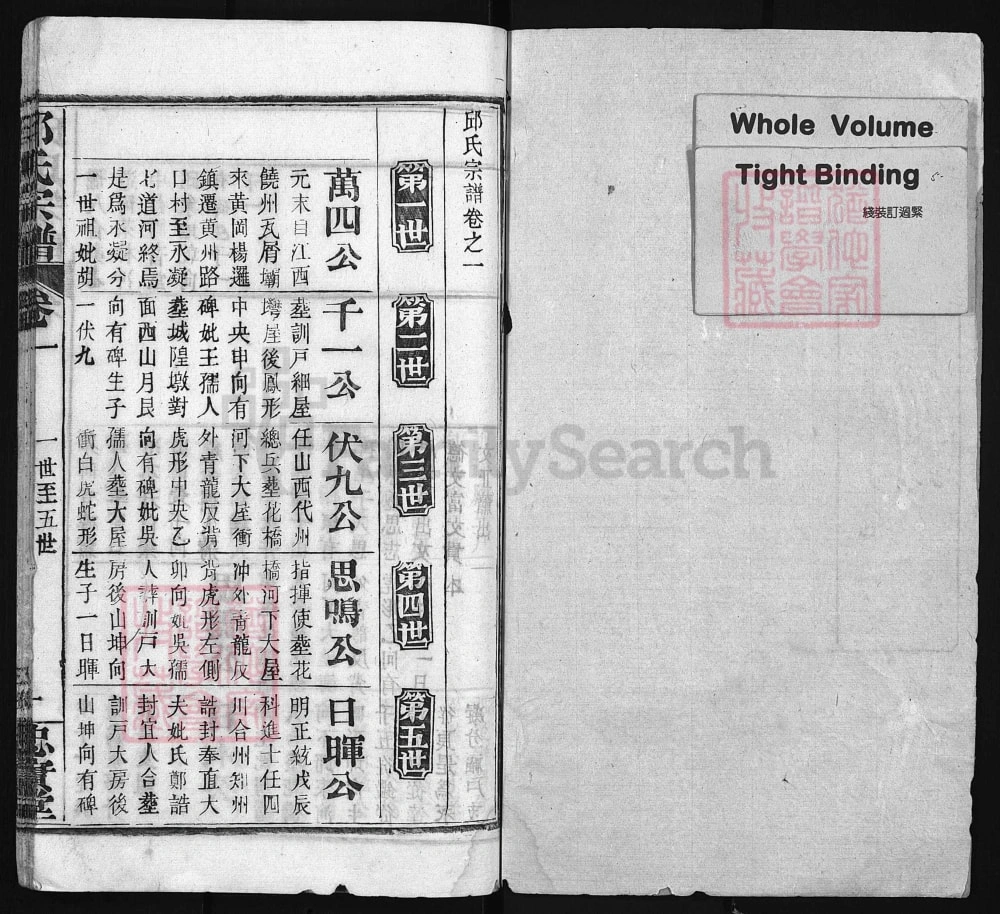 Whole Volume
Tight Binding
綫裝訂過緊
邱氏宗譜卷之一
第一世
萬四公
元末自江西
饒州瓦屑壩
來黃岡楊邏
鎮遷黃州路
口村至永凝
七道河終焉
是爲永凝分
一世祖妣胡
第二世
千一公
葬訓戶細屋
塆屋後鳳形
中央申向有
碑妣王孺人
葬城隍墩對
面西山月艮
向有碑生子
一伏九
第三世
伏九公
任山西代州
總兵葬花橋
河下大屋衝
外青龍反背
虎形中央乙
向有碑妣吳
孺人葬大屋
衝白虎蛇形
第四世
思鳴公
指揮使葬花
橋河下大屋
冲外青龍反
背虎形左側
卯向妣吳孺
人葬訓戶大
房後山坤向
生子一日暉
第五世
日暉公
明正統戊辰
科進士任四
川合州知州
誥封奉直大
夫妣氏鄭誥
封宜人合葬
訓戶大房後
山坤向有碑
邱氏宗譜
卷一
一世至五世
FamilySearch